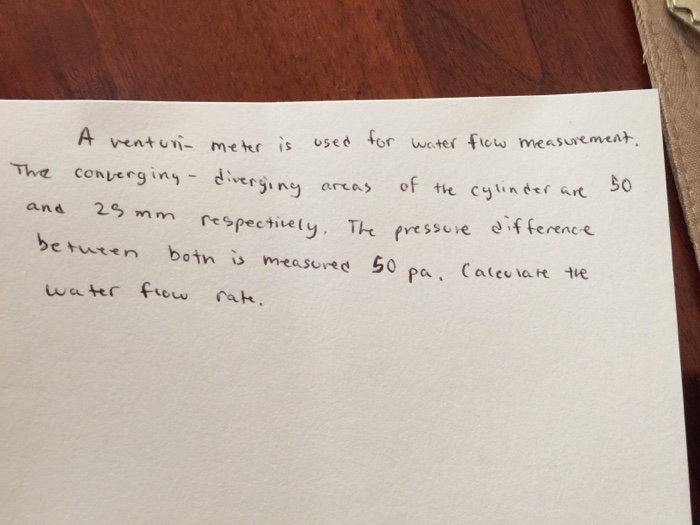 A venturi- meter is used for water flow measurement.
The converging - diverging areas of the cylinder are 50
and 25 mm respectively. The pressure difference
between both is measured 50 pa. Calculate the
water flow rate.